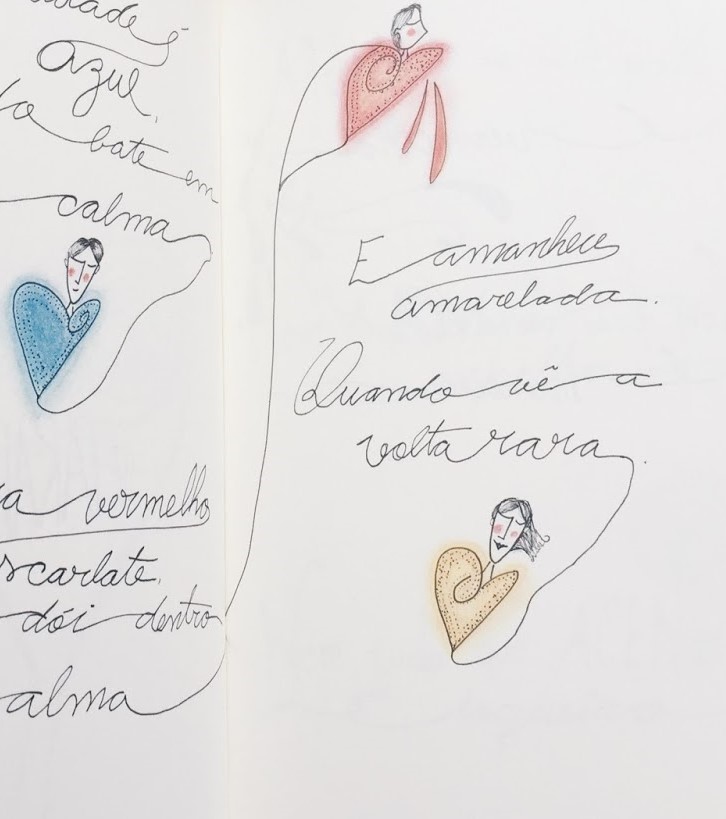 azul.
bate em
calma
vermelho
scarlate.
dói dentro
alma
E amanhece
amarelada.
Quando vê a
volta rara.